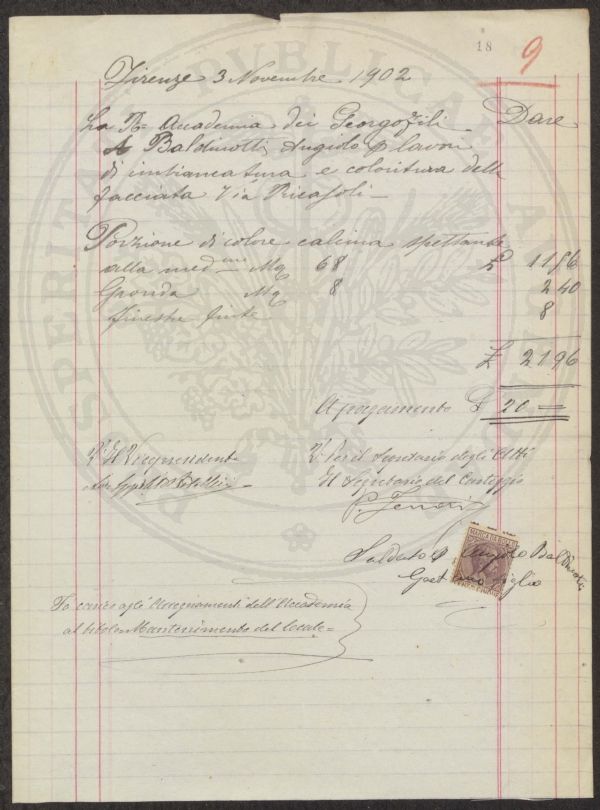 18 9
Firenze 3 Novembre 1902
La Rª Accademia dei Georgofili Dare
A Baldinotti Angiolo p lavori
di imbiancatura e coloritura della
facciata Via Ricasoli —
Porzione di colore calcina spettante
alla med — Mq 68 £ 1156
Gronda Mq 8 2 40
finestre finte 8
£ 2196
A pagamento £ 20 =
V° Il Vicepresidente
V° Per il Segretario degli Atti
Il Segretario del Carteggio
Saldato p Angiolo Baldinotti
MARCA DA BOLLO
figlio
Fa carico agli Assegnamenti dell'Accademia
al titolo Mantenimento del locale =
PROSPERITATI PUBLICAE AUGENDAE